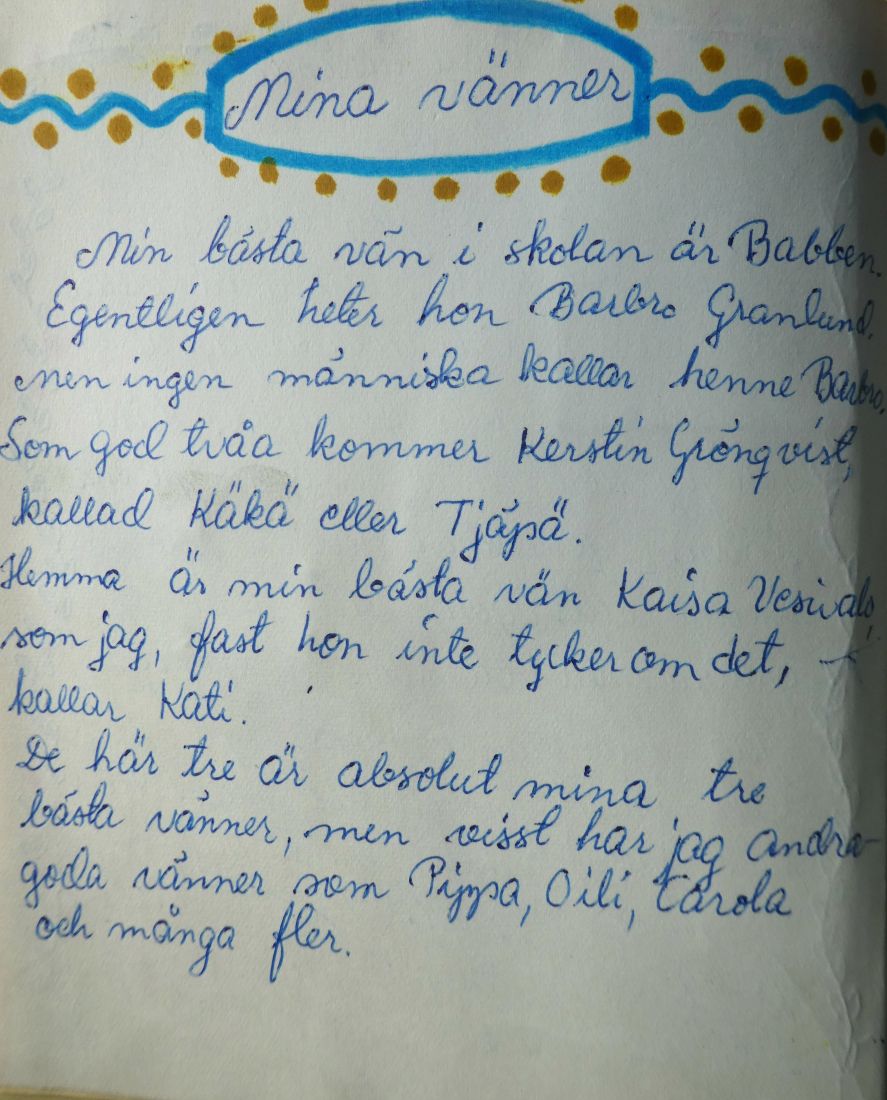 Mina vänner
Min bästa vän i skolan är Babben.
Egentligen heter hon Barbro Granlund.
men ingen människa kallar henne Barbro.
Som god tvåa kommer Kerstin Grönqvist,
kallad Käkä eller Tjäpä.
Hemma är min bästa vän Kaisa
som jag, fast hon inte tycker om det,
kallar Kati.
De här tre är absolut mina tre
bästa vänner, men visst har jag andra
goda vänner som Pippa, Oili, Carola
och många fler.